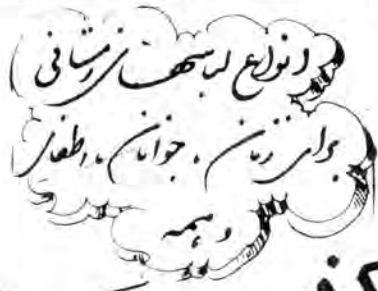 انواع لباسهای زمستانی
برای زنان، جوانان، اطفال
و همه